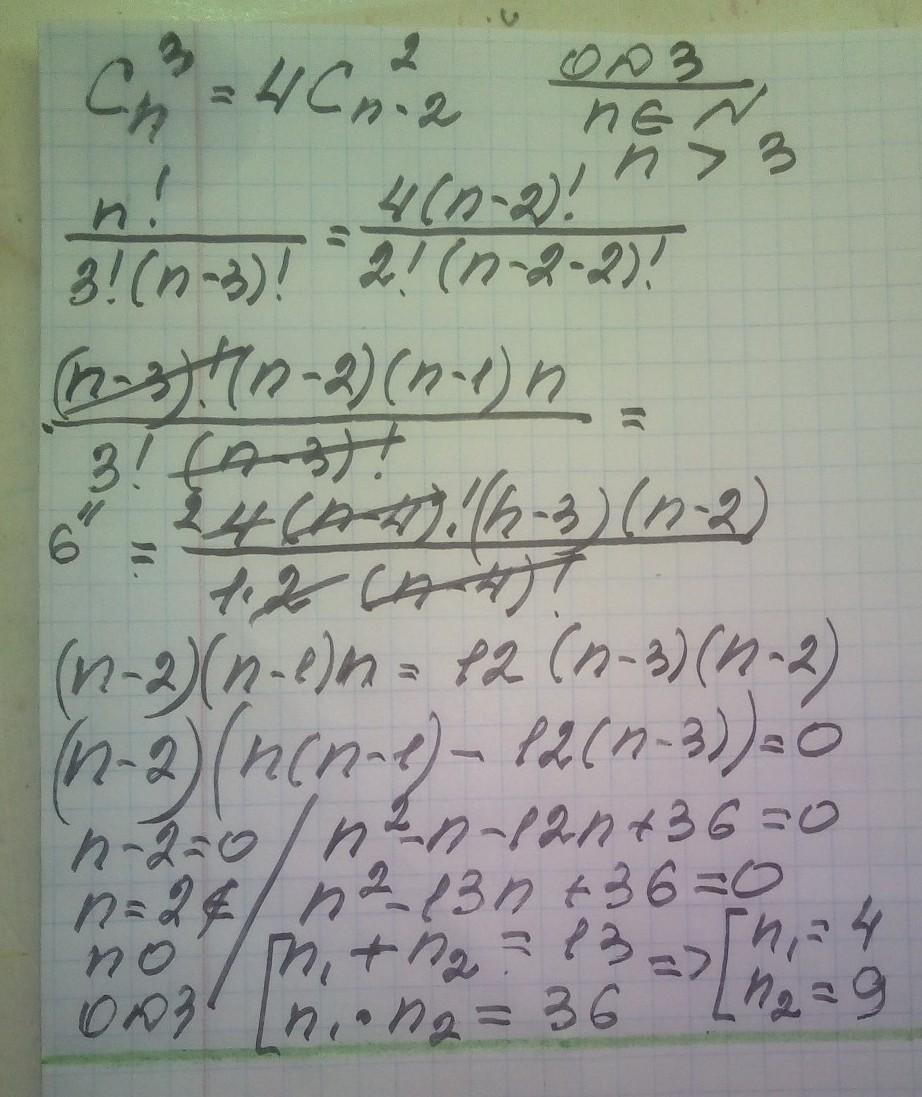 C_n^3 = 4C_{n-2}^2
ОДЗ
n ∈ N
n > 3
n! / 3!(n-3)! = 4(n-2)! / 2!(n-2-2)!
(n-3)!(n-2)(n-1)n / 3!(n-3)! =
6" = 2 4(n-4)!(n-3)(n-2) / 1·2 (n-4)!
(n-2)(n-1)n = 12 (n-3)(n-2)
(n-2)(n(n-1) - 12(n-3)) = 0
n-2=0 / n²-n-12n+36=0
n=2 ∉ / n²-13n+36=0
по
ОДЗ
[n₁+n₂=13
[n₁·n₂=36
=> [n₁=4
[n₂=9